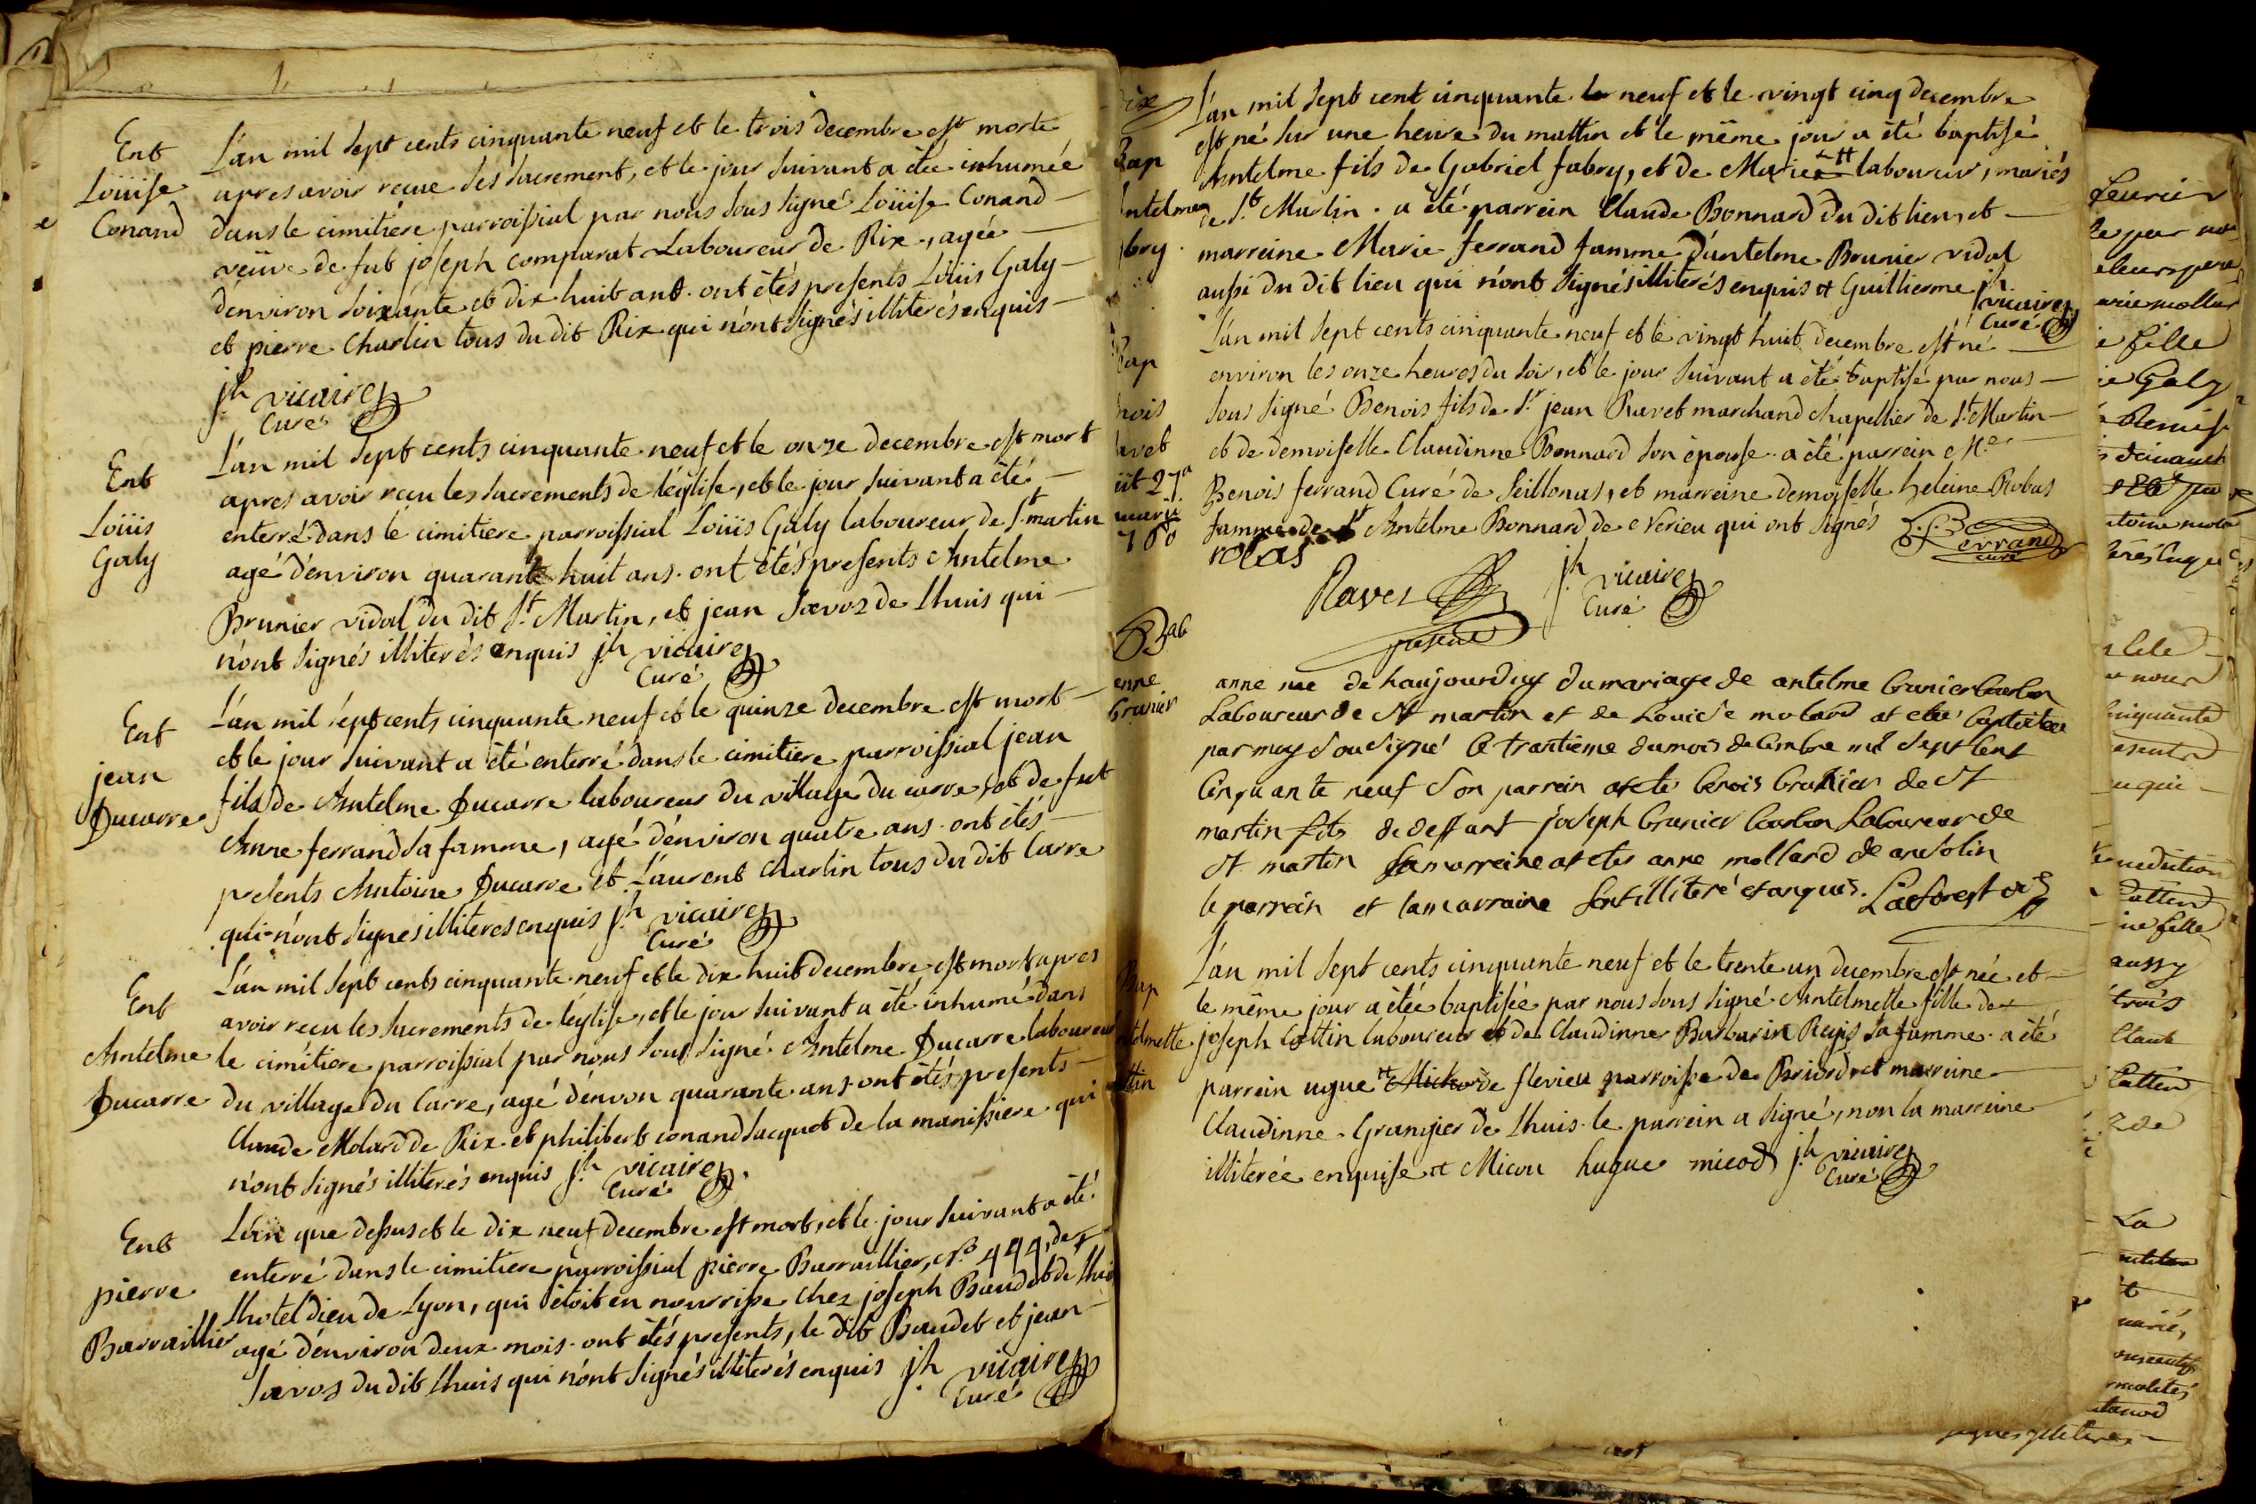 Ent
Loüise
Conand
L'an mil sept cents cinquante neuf et le trois decembre est morte
apres avoir reçue ses sacrement, et le jour suivant a étée inhumée
dans le cimitiere parroissial par nous sous signé Loüise Conand
veüve de fut joseph comparat Laboureur de Rix, agée
d'environ soixante et dix huit ans. ont étés presents Loüis Galy
et pierre Charlin tous du dit Rix qui n'ont signés illiterés enquis
jh vicaire
Curé
Ent
Loüis
Galy
L'an mil sept cents cinquante neuf et le onze decembre est mort
apres avoir reçu les sacrements de l'église, et le jour suivant a été
enterré dans le cimitiere parroissial Loüis Galy laboureur de St. martin
agé d'environ quarante huit ans. ont étés presents Antelme
Brunier vidal du dit St. Martin, et jean Saevoz de Lhuis qui
n'ont signés illiterés enquis jh vicaire
Curé
Ent
jean
Ducarre
L'an mil sept cents cinquante neuf et le quinze decembre est mort
et le jour suivant a été enterré dans le cimitiere parroissial jean
fils de Antelme Ducarre laboureur du village du carre, et de fut
Anne ferrand sa famme, agé d'environ quatre ans. ont étés
presents Antoine Ducarre et Laurent Charlin tous du dit Carre
qui n'ont signés illiteres enquis jh vicaire
Curé
Ent
Antelme
Ducarre
L'an mil sept cents cinquante neuf et le dix huit decembre est mort apres
avoir reçu les sacrements de l'église, et le jour suivant a été inhumé dans
le cimitiere parroissial par nous sous signé Antelme Ducarre laboureur
du village du Carre, agé d'envon quarante ans. ont étés presents
Claude Molard de Rix et philibert conand Jacquet de la manissiere qui
n'ont signés illiterés enquis jh vicaire
Curé
Ent
pierre
Barraillier
L'an que dessus et le dix neuf decembre est mort, et le jour suivant a été
enterré dans le cimitiere parroissial pierre Barraillier, No. 444, de
Lhotel dieu de Lyon, qui étoit en nourrisse chez joseph Baudet de Lhuis
agé d'environ deux mois. ont étés presents, le dit Baudet et jean
Saevoz du dit Lhuis qui n'ont signés illiterés enquis jh vicaire
Curé
Bap
ntelme
bry
L'an mil sept cent cinquante neuf et le vingt cinq decembre
est né sur une heure du mattin et le même jour a été baptisé
Antelme fils de Gabriel fabry, et de Marie laboureur, mariés
de St. Martin. a été parrein Claude Bonnard du dit lieu, et
marreine Marie ferrand famme d'antelme Brunier vidal
aussi du dit lieu qui n'ont signés illiterés enquis et Guillierme jh
vicaire
Curé
Bap
nois
avet
L'an mil sept cents cinquante neuf et le vingt huit decembre est né
environ les onze heures du soir, et le jour suivant a été baptisé par nous
sous signé Benois fils de Sr. jean Ravet marchand chapellier de St. Martin
et de demoiselle Claudinne Bonnard son épouse. a été parrein Me.
Benois ferrand Curé de Seillonas, et marreine demoiselle heleine Robas
famme de Sr. Antelme Bonnard de Verieu qui ont signés
B. ferrand
curé
robas
Ravet
jh vicaire
Curé
Bab
enne
brunier
anne née de haujourdhuy du mariage de antelme brunier
Laboureur de St martin et de Louise molard at etté baptisée
par moy sousigné le trantieme du mois decembre mil sept cent
cinquante neuf son parrein at été benois brunier de St
martin fils de deffunt joseph brunier Laboureur de
St martin sa marreine at etés anne mollard de ansolin
le parrein et la marraine sont illiteré et anquis. Laforest
Bap
ntelmette
ttin
L'an mil sept cents cinquante neuf et le trente un decembre est née et
le même jour a étée baptisée par nous sous signé Antelmette fille de
joseph Cottin laboureur et de Claudinne Barbarin Reys sa famme. a été
parrein ugue de flevieu parroisse de Briord et marreine
Claudinne Grangier de Lhuis. le parrein a signé, non la marreine
illiterée enquise et Micou hugue micod jh vicaire
Curé